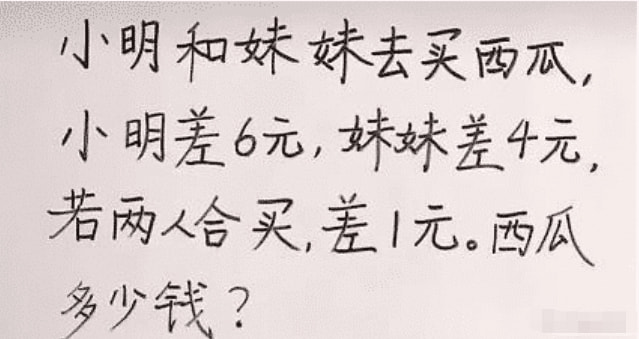 小明和妹妹去买西瓜,
小明差6元,妹妹差4元,
若两人合买,差1元。西瓜
多少钱?